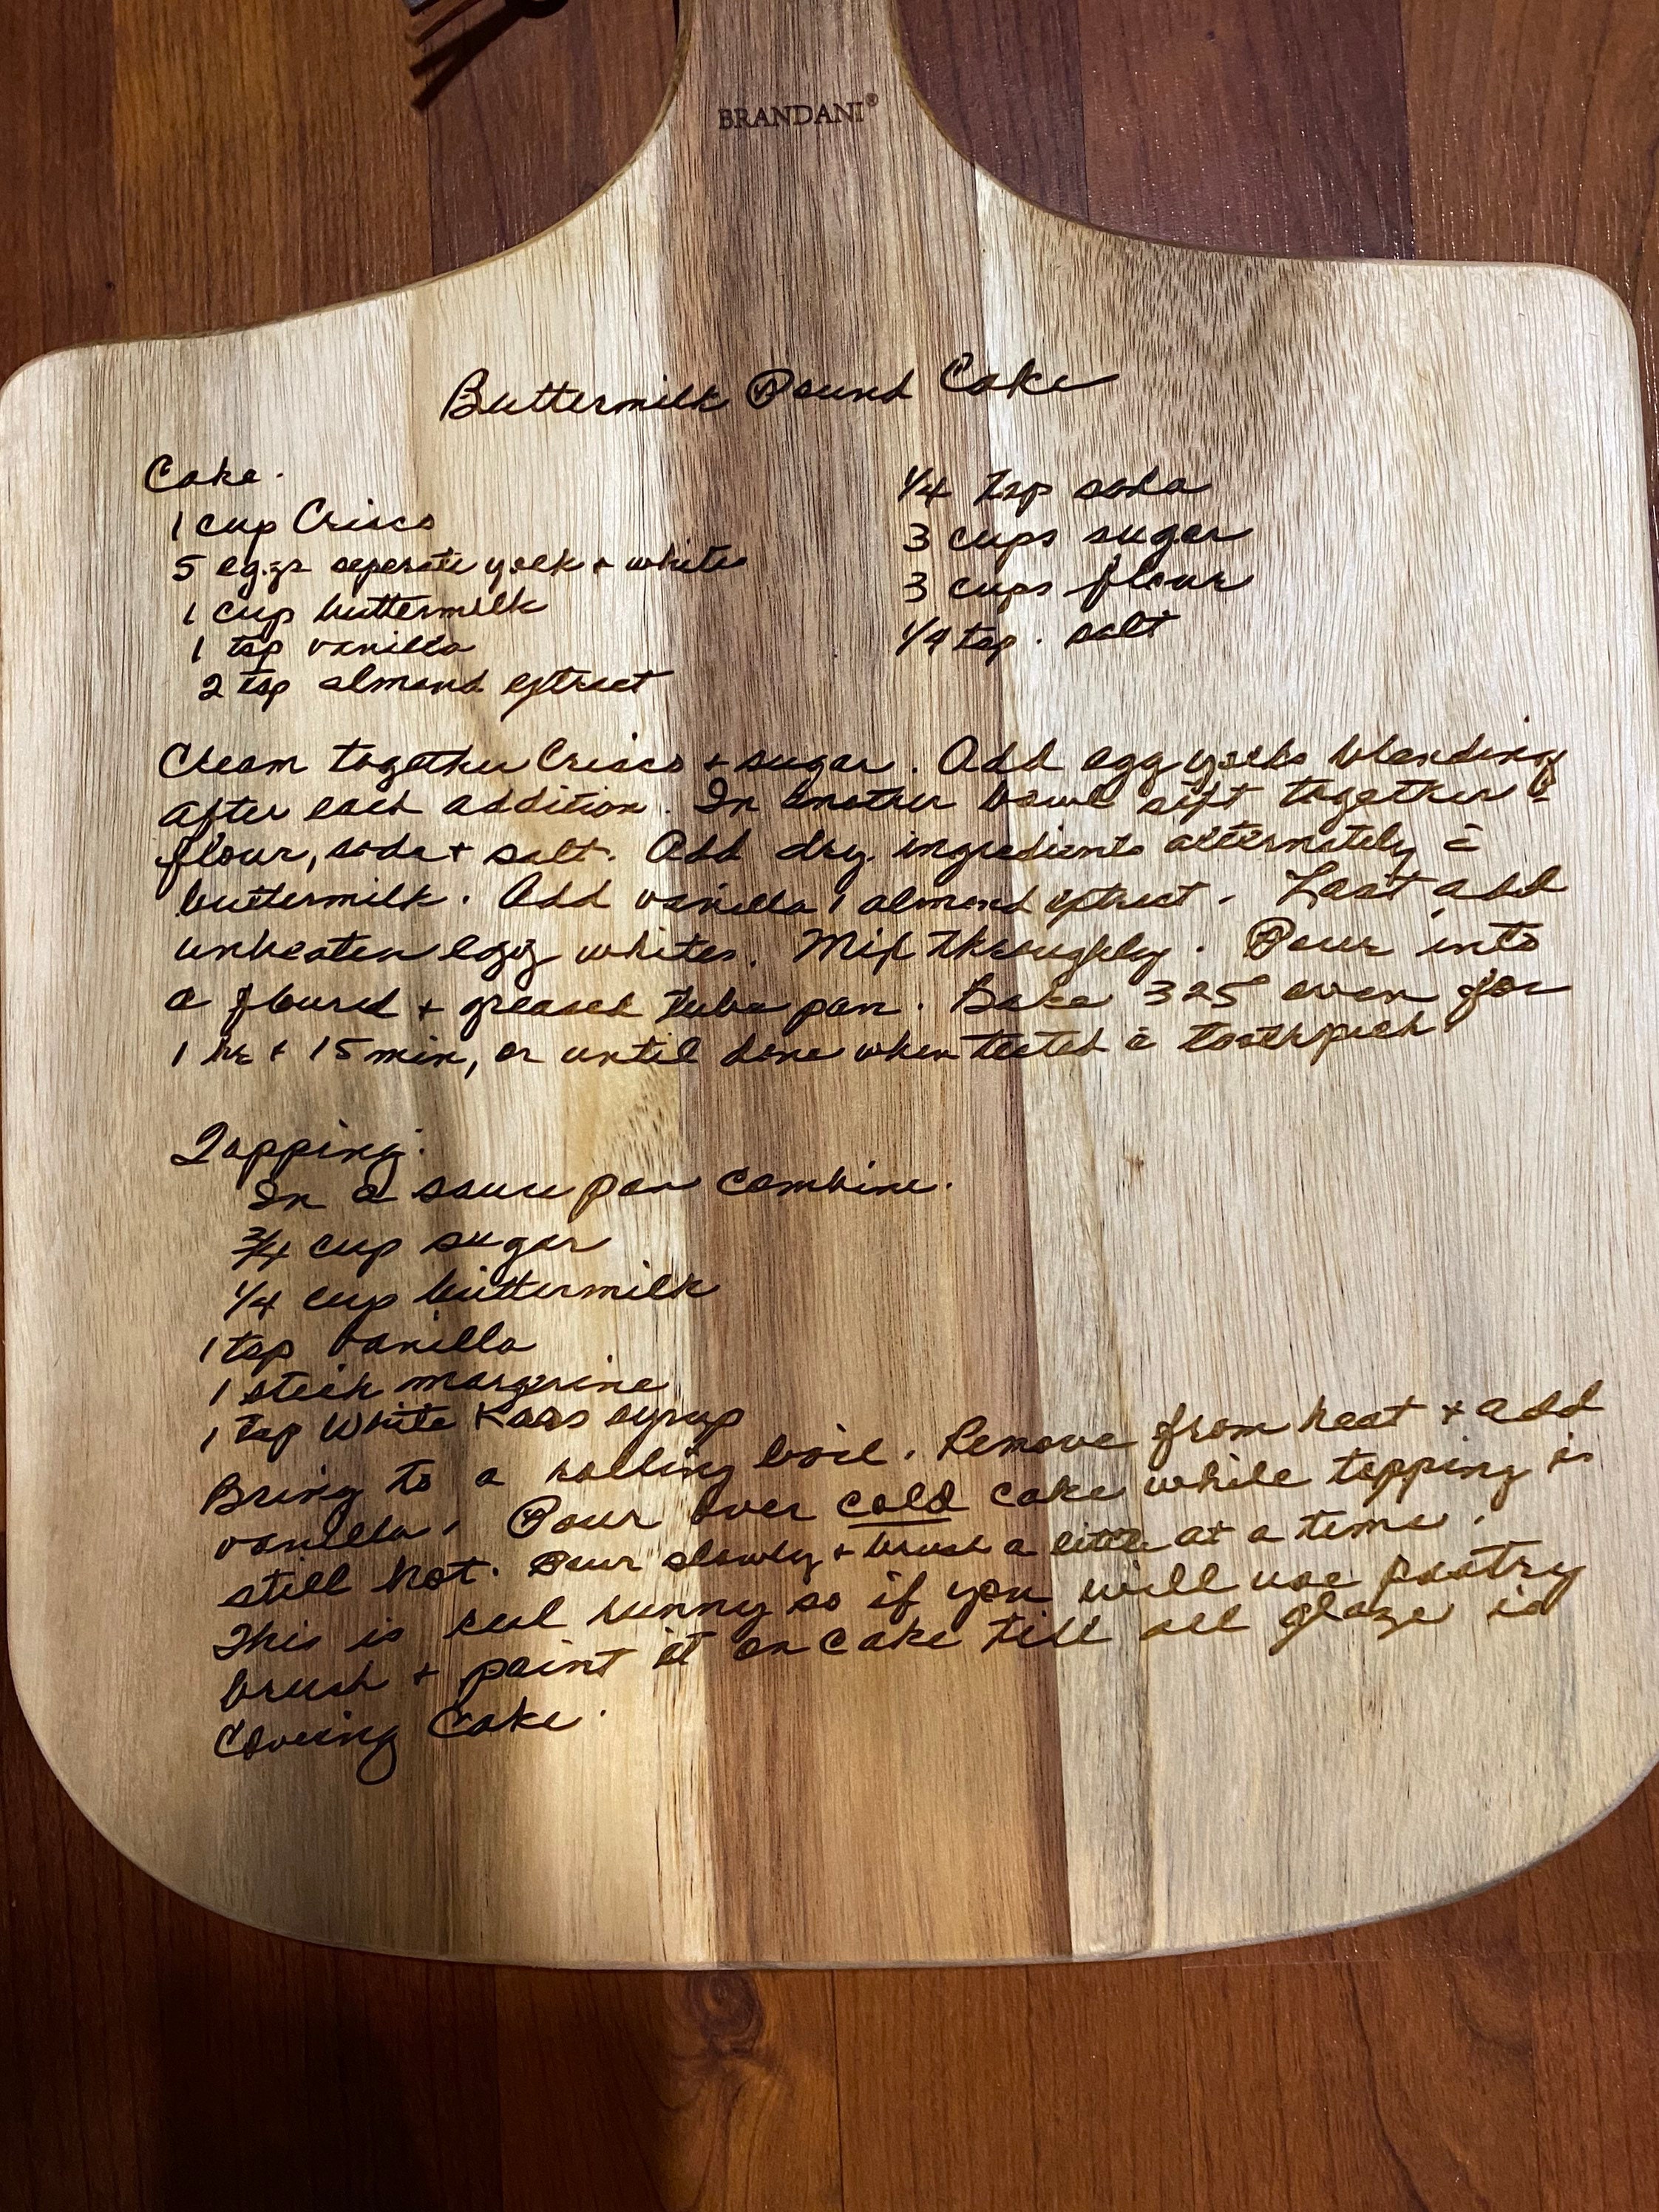 BRANDANI®
Buttermilk Pound Cake
Cake.
1 cup Crisco
5 eggs seperate yolk + whites
1 cup buttermilk
1 tsp vanilla
2 tsp almond extract
1/4 tsp soda
3 cups sugar
3 cups flour
1/4 tsp. salt
Cream together Crisco + sugar. Add egg yolks blending
after each addition. In another bowl sift together :
flour, soda + salt. Add dry ingredients alternately c̄
buttermilk. Add vanilla, almond extract. Last, add
unbeaten egg whites. Mix thoroughly. Pour into
a floured + greased tube pan. Bake 325° oven for
1 hr + 15 min, or until done when tested c̄ toothpick
Topping:
In a sauce pan combine.
3/4 cup sugar
1/4 cup buttermilk
1 tsp vanilla
1 stick margarine
1 tsp White Karo syrup
Bring to a rolling boil. Remove from heat + add
vanilla. Pour over cold cake while topping is
still hot. Pour slowly + brush a little at a time.
This is real runny so if you will use pastry
brush + paint it on cake till all glaze is
Covering Cake.